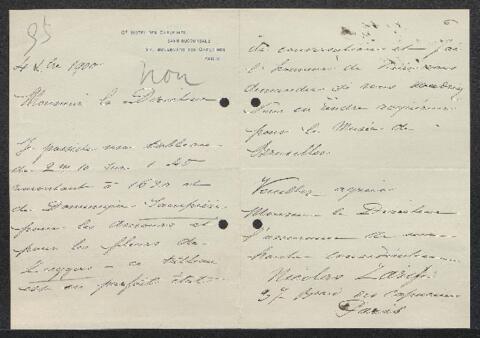 95
Gd HOTEL DES CAPUCINES
SANS SUCCURSALE
37, BOULEVARD DES CAPUCINES
PARIS
4 Xbre 1900
non
Monsieur le Directeur
Je possède un tableau
de 2m 10 sur 1
remontant à 1630 et
de Domenique Zampieri
pour les et
pour les fleurs de
Zeeggers - ce tableau
est en parfait état
6
de conservation et j'ai
l'honneur de vous
demander si vous
vous en rendre acquéreur
pour le Musée de
Bruxelles.
Veuillez agréer
Monsieur le Directeur
l'assurance de ma
haute considération
Nicolas
37 Board des Capucines
Paris